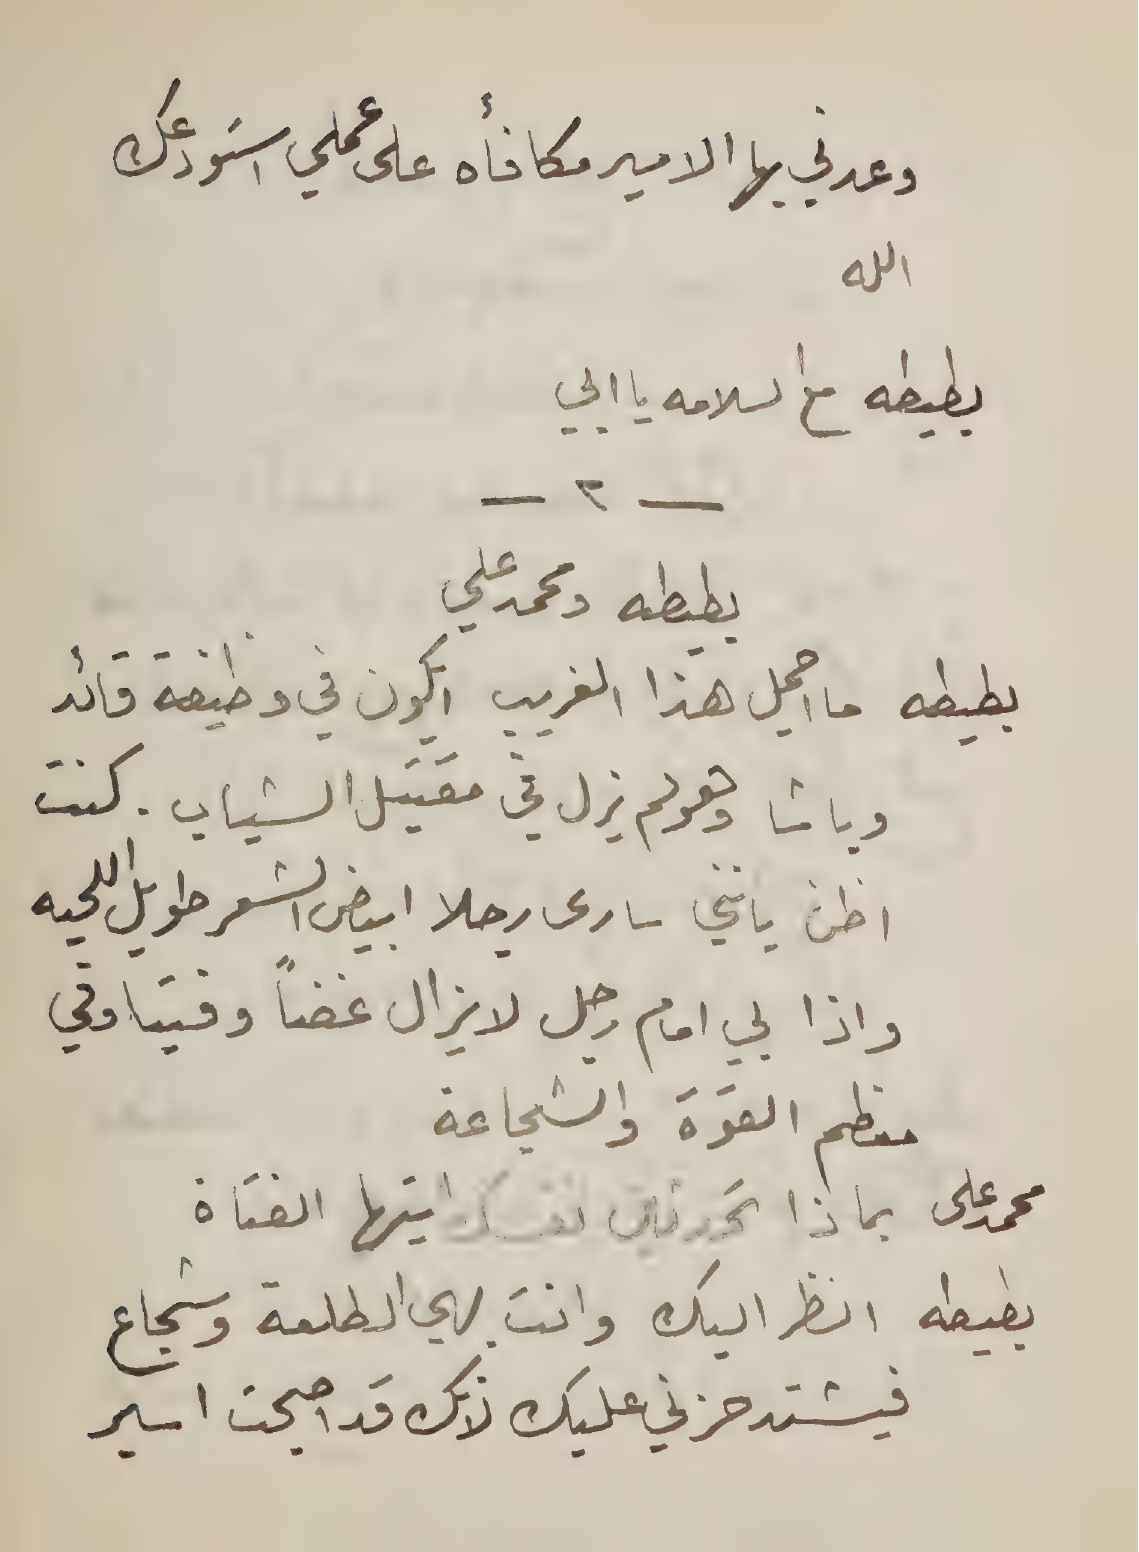 وعدني بها الامير مكافأه على عملي استودعك
الله
بطيطه مع السلامه يا ابي
— ٢ —
بطيطه ومحمد علي
بطيطه ما اجمل هذا الغريب ايكون في وظيفة قائد
وباشا وهو لم يزل في مقتبل الشباب . كنت
اظن بانني سارى رجلا ابيض الشعر طويل اللحيه
واذا بي امام رجل لا يزال غضاً وفتيا وفي
معظم القوة والشجاعة
محمد على بماذا تحدثين نفسك ايتها الفتاة
بطيطه انظر اليك وانت بهي الطلعة وشجاع
فيشتد حزني عليك لانك قد اصبحت اسير